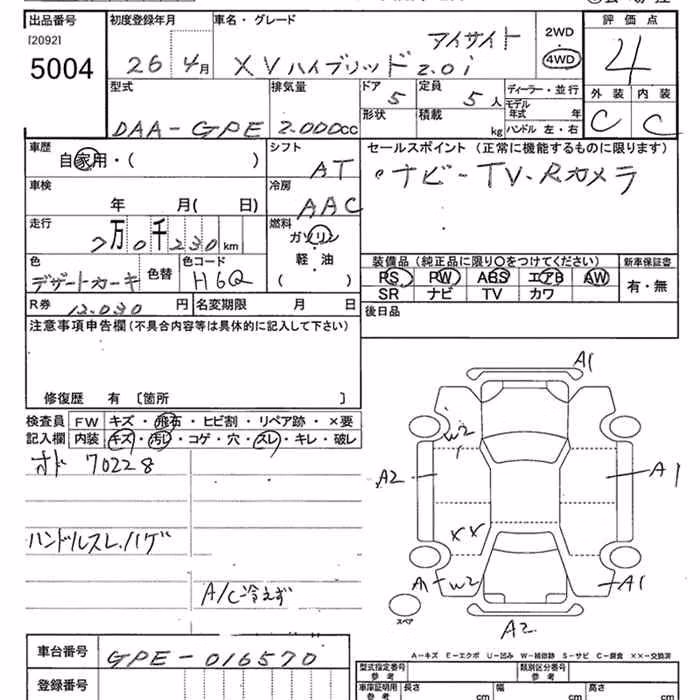 出品番号 初度登録年月 車名・グレード 評価点
[2092] アイサイト 2WD
5004 26 4月 XVハイブリッド2.0i 4WD 4
型式 排気量 ドア 定員 ディーラー・並行 外装 内装
5 5人 モデル年式 年
形状 積載 C C
DAA-GPE 2.000cc kg ハンドル 左・右
車歴 シフト セールスポイント (正常に機能するものに限ります)
自家用・( ) AT ナビ-TV-Rカメラ
車検 冷房
年 月( 日) AAC
走行 燃料
7万0千230km ガソリン
色 色替 色コード 軽・油 装備品 (純正品に限り○をつけてください) 新車保証書
デザートカーキ H6Q ( ) PS PW ABS エアB AW 有・無
SR ナビ TV カワ
R券 12.030円 名変期限 月 日 後日品
注意事項申告欄(不具合内容等は具体的に記入して下さい)
A1
修復歴 有 [箇所 ]
検査員 FW キズ・飛石・ヒビ割・リペア跡・×要
記入欄 内装 キズ・汚レ・コゲ・穴・スレ・キレ・破レ
W2
オド 70228
A2 A1
ハンドルスレ.ハゲ XX
A/C冷えず A W2 A1
スペア
A2
A-キズ E-エクボ U-凹み W-補修跡 S-サビ C-腐食 ××-交換済
車台番号 GPE-016570 型式指定番号 参考 類別区分番号 参考
登録番号 車庫証明用 参考 長さ cm 幅 cm 高さ cm